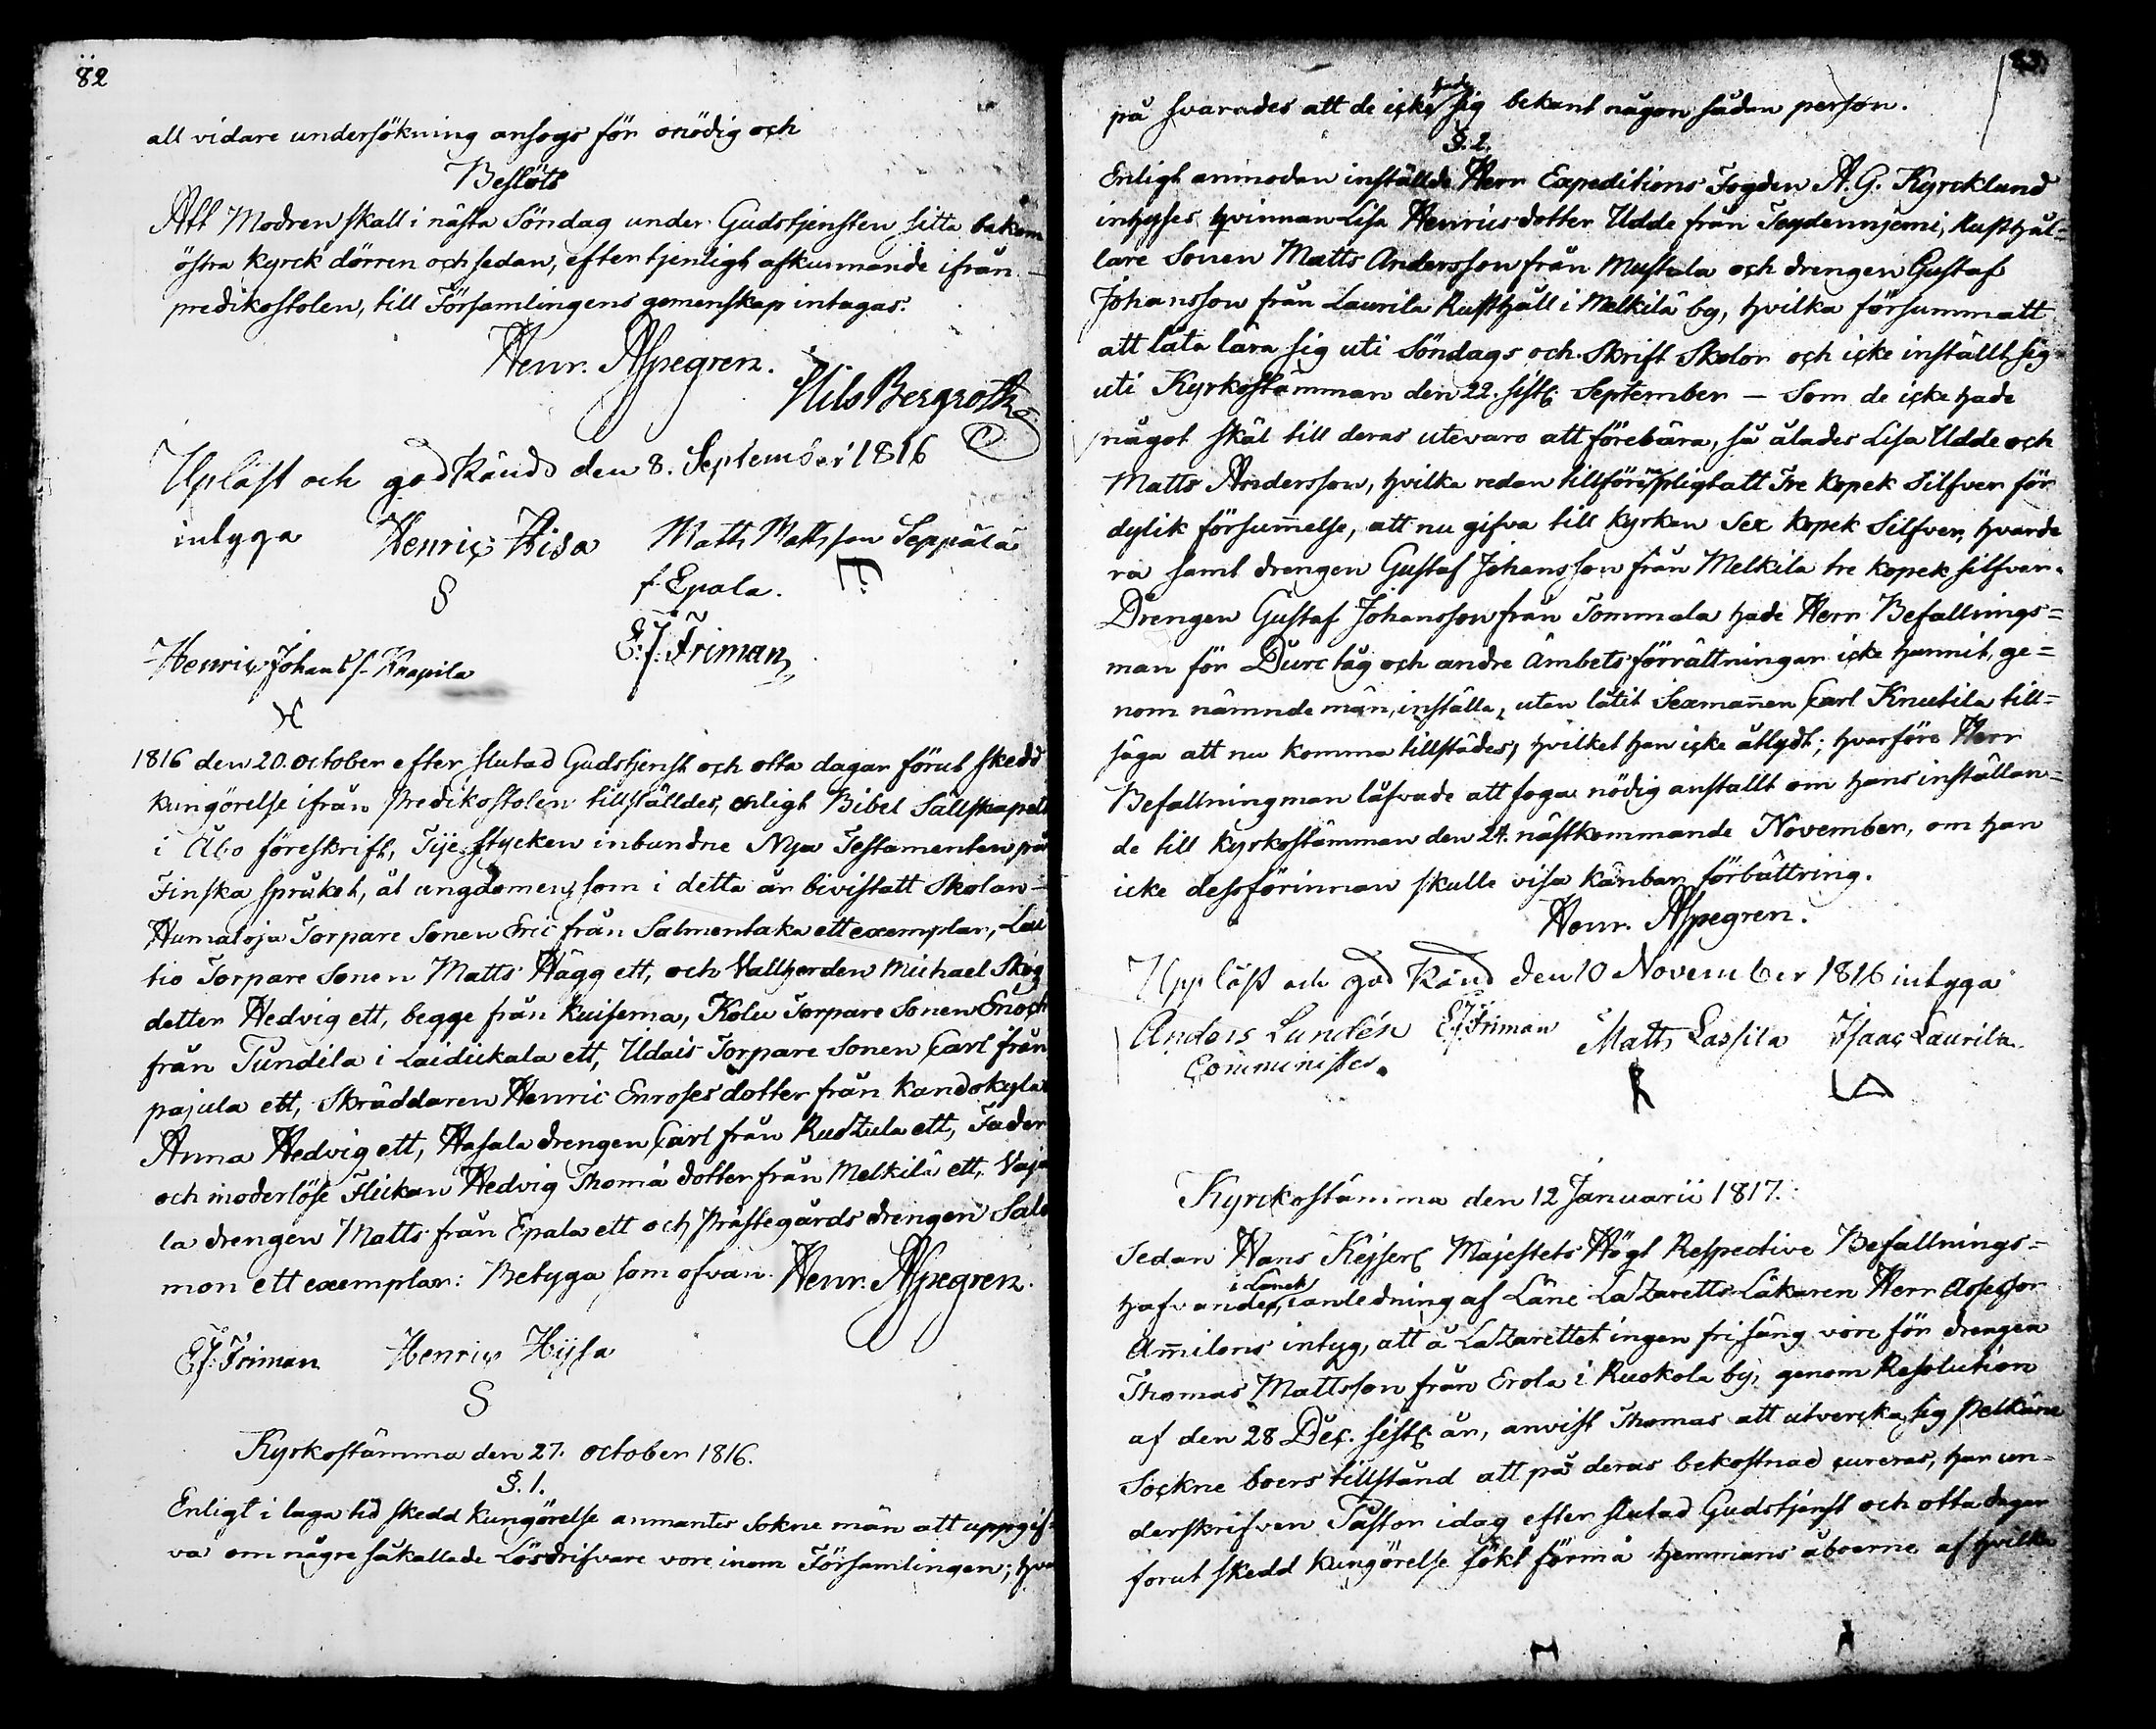 82
all vidare undersökning ansogs för onödig och
Beslöts
Att Modren skall i nästa Söndag under Gudstjensten sitta bakom
östra kyrck dörren och sedan, efter tjenligt afkunnande ifrån
predikostolen, till Församlingens gemenskap intagas.
Henr. Aspegren.
Nils Bergroth
Upläst och godkänds den 8. September 1816
intyga Henric Hisa Matts Mattsson Seppälä
f. Epala.
E:J: Friman
Henric Johansf. Knapila
1816 den 20. October efter slutad Gudstjenst och otta dagar förut skedd
kungörelse ifrån Predikostolen tillställdes, enligt Bibel Sällskapets
i Åbo föreskrift, Tije stycken inbundne Nya Testamenten på
Finska språket, åt ungdomen, som i detta år bivistatt Skolan –
Humaloja Torpare Sonen Eric från Salmentaka ett exemplar, Lau
tio Torpare Sonen Matts Hägg ett, och Vallherden Michael Skog
detter Hedvig ett, begge från Kuisema, Kolu Torpare Sonen Enoch
från Tundila i Laidiikala ett, Udais Torpare Sonen Carl från
pajula ett, Skräddaren Henric Enroses dotter från Kandokylä
Anna Hedvig ett, Hasala drengen Carl från Rudzula ett, Fader
och moderlöse Flickan Hedvig Thomä dotter från Melkilä ett, Vaja
la drengen Matts från Epala ett och Prästegårds drengen Salo
mon ett exemplar: Betyga som ofvan. Henr. Aspegren.
E:J: Friman Henric Hijsa
Kyrkostämma den 27. October 1816.
§. 1.
Enligt i laga tid skedd kungörelse anmantes Sokne män att uppgif-
va om någre såkallade Lösdrifvare vore inom Församlingen; hva
på svarades att de icke hade sig bekant någon sådan person.
§. 2.
Enligt anmodan inställde Herr Expeditions Fogden A. G. Kyrcklund
inhyses qvinnan Lisa Henricsdotter Udde från Taydennjemi, Rusthål-
lare Sonen Matts Andersson från Mustala och drengen Gustaf
Johansson från Laurila Rusthåll i Melkilä by, hvilka försummatt
att låta lära sig uti Söndags och Skrift Skolor och icke inställt sig
uti Kyrkostämman den 22. sistl. September – Som de icke hade
något skäl till deras utevaro att förebära, så ålades Lisa Udde och
Matts Andersson, hvilka redan tillförene pligtatt Tre kopek Silfver för
dylik försum̅else, att nu gifva till kyrkan Sex kopek Silfver, hvarde
ra samt drengen Gustaf Johansson från Melkila tre kopek silfver.
Drengen Gustaf Johansson från Tommala hade Herr Befallnings-
man för Durc tåg och andre Ämbets förrättningar icke hunnit, ge-
nom nämnde män, inställa, utan låtit Sexman̅en Carl Knutila till-
säga att nu komma tillstädes, hvilket han icke åtlydt; hvarföre Herr
Befallningman låfvade att foga nödig anstallt om hans inställan-
de till Kyrkostämman den 24. nästkommande November, om han
icke dessförinnan skulle visa känbar förbättring.
Henr. Aspegren.
Uppläst och god känd den 10 November 1816 intyga
Anders Lundén E:J: Friman Matts Lassila Isaac Laurila
Comminister.
Kyrckostämma den 12 Januarii 1817.
Sedan Hans Kejserl Majestets Högt Respective Befallnings-
hafvandes i Länet, i anledning af Läne Lazaretts Läkaren Herr Assessor
Am̅ilons intyg, att å Lazarettet ingen fri säng vore för drengen
Thomas Mattsson från Erola i Ruokola by, genom Resolution
af den 28 Dec. sistl. år, anvist Thomas att utvercka sig Pelkäne
Sockne boers tillstånd att på deras bekostnad cureras, har un-
derskrifven Pastor idag efter slutad Gudstjenst och otta dagar
forut skedd kungörelse sökt förmå hemmans åboerne af hvilka